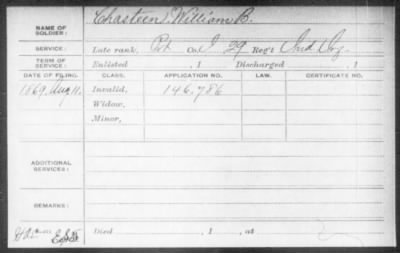 NAME OF SOLDIER: Chasteen, William B.
SERVICE: Late rank, Pvt Co. I 29 Reg't Ind Inf.
TERM OF SERVICE: Enlisted , 1 Discharged , 1
DATE OF FILING. CLASS. APPLICATION NO. LAW. CERTIFICATE NO.
1869, Aug 11. Invalid, 146.786
Widow,
Minor,
ADDITIONAL SERVICES:
REMARKS:
Died , 1 , at